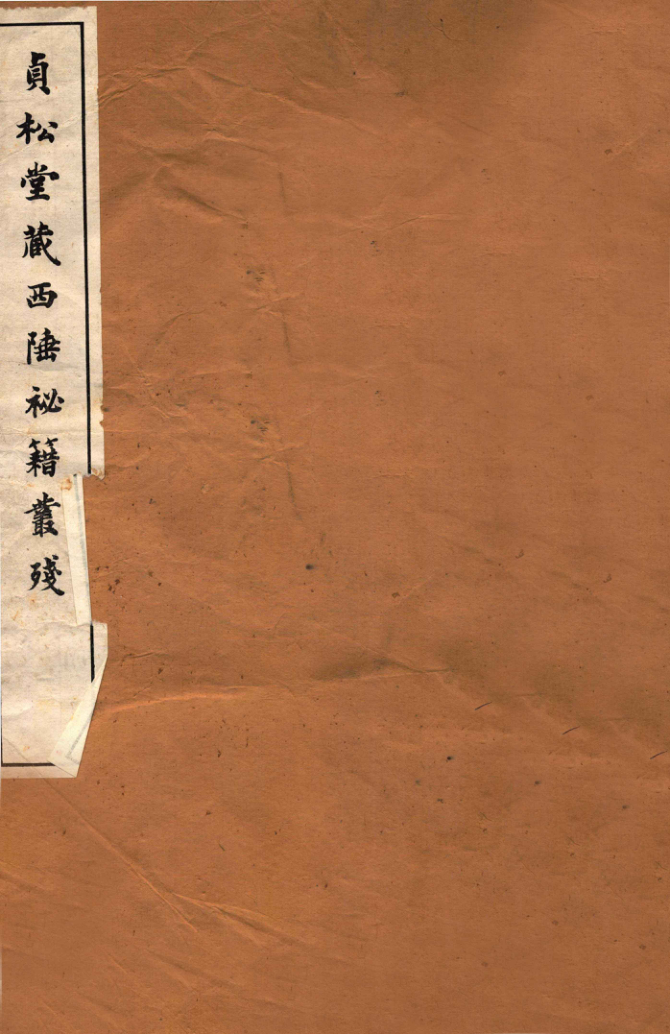 貞松堂藏西陲祕籍叢殘